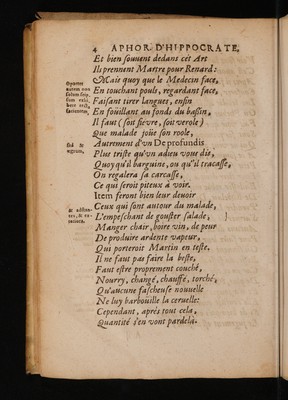 4 APHOR. D'HIPPOCRATE,
Et bien souuent dedans cet Art
Ils prennent Martre pour Renard:
Mais quoy que le Medecin face,
En touchant pouls, regardant face,
Faisant tirer langues, enfin
En fouillant au fonds du bassin,
Il faut (soit fievre, soit verole)
Que malade joüe son roole,
Autrement d'vn De profundis
Plus triste qu'vn adieu vous dis,
Quoy qu'il barguine, ou qu'il tracasse,
On regalera sa carcasse,
Ce qui seroit piteux à voir.
Item feront bien leur deuoir
Ceux qui sont autour du malade,
L'empeschant de gouster salade,
Manger chair, boire vin, de peur
De produire ardente vapeur,
Qui porteroit Martin en teste,
Il ne faut pas faire la beste,
Faut estre proprement couché,
Nourry, changé, chauffé, torché,
Qu'aucune fascheuse nouuelle
Ne luy barbouille la ceruelle:
Cependant, aprés tout cela,
Quantité s'en vont pardelà.
Oportet
autem non
solum seip-
sum
facientem,
sed &
ægrum,
& assiden-
tes, & ex-